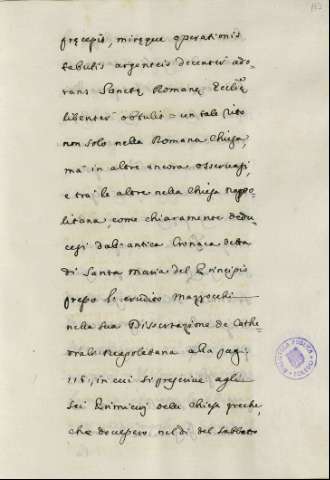 183
præcepit, miręque operationis
tabulis argenteis decenter ado-
rans Sanctę Romanę Ecclię
libenter obtulit = un tale rito
non solo nella Romana Chiesa,
mà in altre ancora osservasi,
e tra' le altre nella Chiesa Napo-
litana, come chiaramente dedu-
cesi dall'antica Cronaca detta
di Santa Maria del Principio
presso l'erudito Mazzocchi
nella sua Dissertazione de Cathe-
drali Neapolitana alla pag:
116, in cui si prescrive agli
sei Primicerj delle Chiese greche,
che dovessero nel dì del Sabbato
BIBLIOTECA PUBLICA
TOLEDO